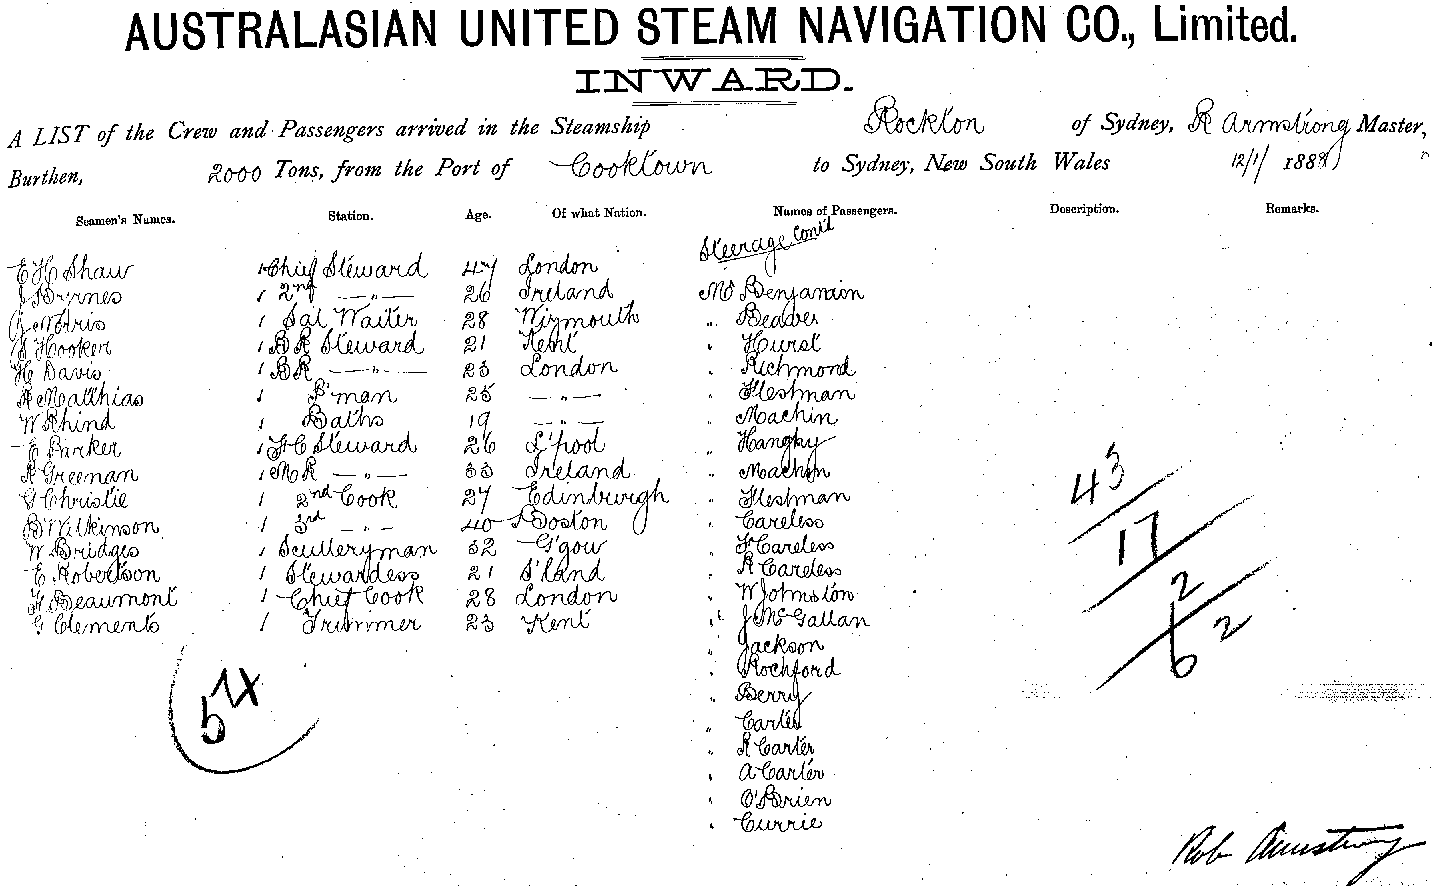 AUSTRALASIAN UNITED STEAM NAVIGATION CO., Limited.
INWARD.
A LIST of the Crew and Passengers arrived in the Steamship Rockton of Sydney, R Armstrong Master,
Burthen, 2000 Tons, from the Port of Cooktown to Sydney, New South Wales 12/1/ 1888
Seamen's Names. Station. Age. Of what Nation. Names of Passengers. Description. Remarks.
Steerage Cont'd
E H Shaw 1 Chief Steward 47 London
J Byrnes 1 2nd —"— 26 Ireland Mr Benjamin
Norris 1 Sal Waiter 28 Weymouth " Beaver
Hooker 1 BR Steward 21 Kent " Hurst
H Davis 1 BR —"— 23 London " Richmond
Matthias 1 P'man 25 —"— " Hestman
W Rhind 1 Baths 19 —"— " Machin
E Parker 1 F C Steward 26 L'pool " Hangby
R Greenan 1 MR —"— 33 Ireland " Machin
G Christie 1 2nd Cook 27 Edinburgh " Hestman
B Wilkinson 1 3rd —"— 40 Boston " Careless
W Bridges 1 Sculleryman 32 G'gow " F Careless
E Robertson 1 Stewardess 21 S'land " R Careless
H Beaumont 1 Chief Cook 28 London " W Johnston
G Clements 1 Trimmer 23 Kent " J McGallan
" Jackson
" Rochford
" Berry
" Carter
" R Carter
" A Carter
" O'Brien
" Currie
43
17
2
62
54
Rob Armstrong